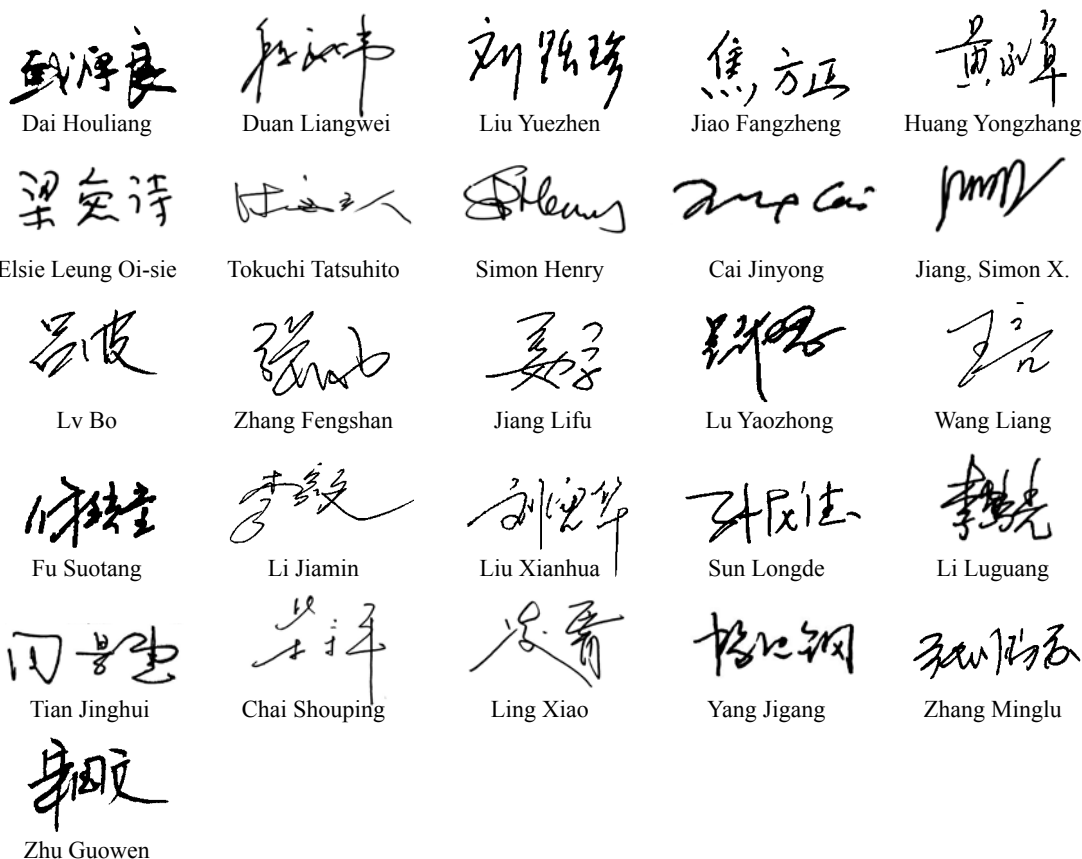 戴厚良 段良伟 刘跃珍 焦方正 黄永章
Dai Houliang Duan Liangwei Liu Yuezhen Jiao Fangzheng Huang Yongzhang
梁爱诗 Simon Henry Cai
Elsie Leung Oi-sie Tokuchi Tatsuhito Simon Henry Cai Jinyong Jiang, Simon X.
吕波 王亮
Lv Bo Zhang Fengshan Jiang Lifu Lu Yaozhong Wang Liang
付锁堂 李 刘宪华 李鹭光
Fu Suotang Li Jiamin Liu Xianhua Sun Longde Li Luguang
田景惠 凌霄 杨继钢
Tian Jinghui Chai Shouping Ling Xiao Yang Jigang Zhang Minglu
国文
Zhu Guowen